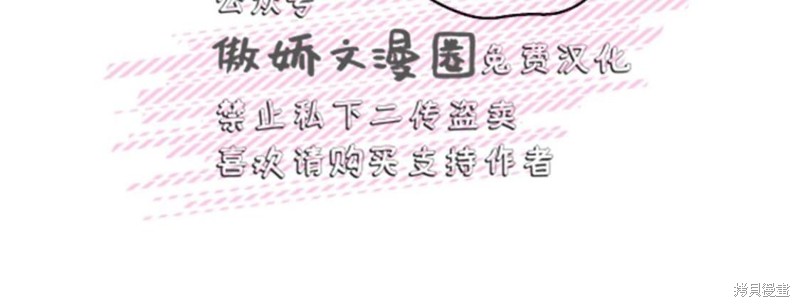 公众号
傲娇文漫圈免费汉化
禁止私下二传盗卖
喜欢请购买支持作者
拷貝漫畫